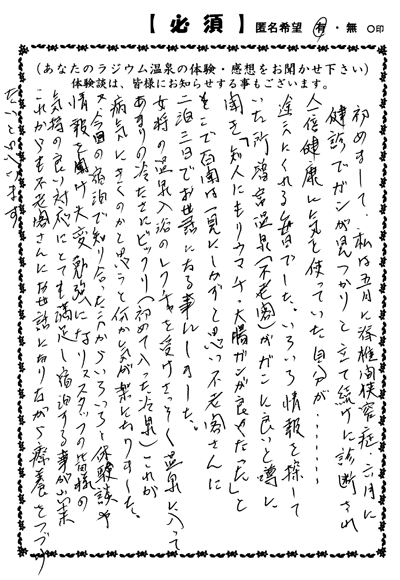 【必須】 匿名希望 有・無 ○印
(あなたのラジウム温泉の体験・感想をお聞かせ下さい)
体験談は、皆様にお知らせする事もございます。
初めまして、私は五月に脊椎間狭窄症、六月に
健診でガンが見つかりと立て続けに診断され
人一倍健康に気を使っていた自分が……
途方にくれる毎日でした。いろいろ情報を探して
いた所 温泉(不老閣)がガンに良いと噂に
聞き「知人にもリウマチ・大腸ガンが良くなった」と
そこで百聞は一見にしかずと思い不老閣さんに
二泊三日でお世話になる事にしました。
女将の温泉入浴のレクチャーを受けさっそく温泉に入って
あまりの冷たさにビックリ(初めて入った冷泉)これが
病気にきくのかと思うと何か気が楽になりました。
又、今回の宿泊で知り合った方からいろいろと体験談や
情報を聞け大変勉強になりスタッフの皆様の
気持の良い対応にとても満足し宿泊する事が出来
これからも不老閣さんにお世話になりながら療養をつづけ
たいと思います